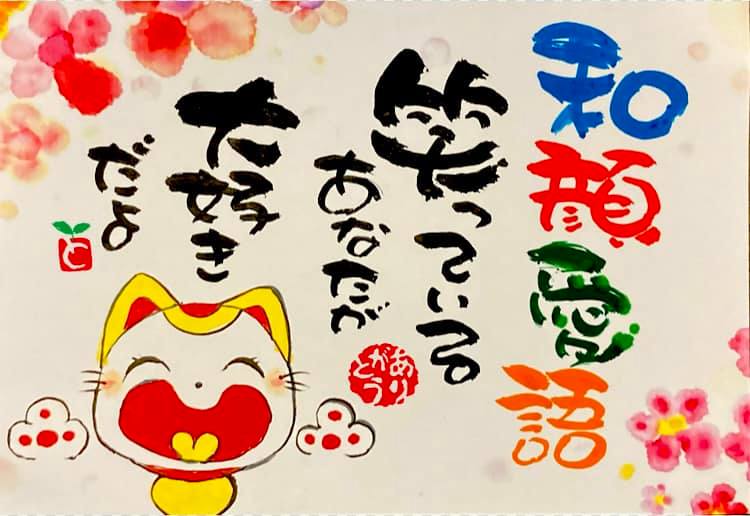 和顔愛語
笑っている
あなたが
大好き
だよ
と
ありがとう